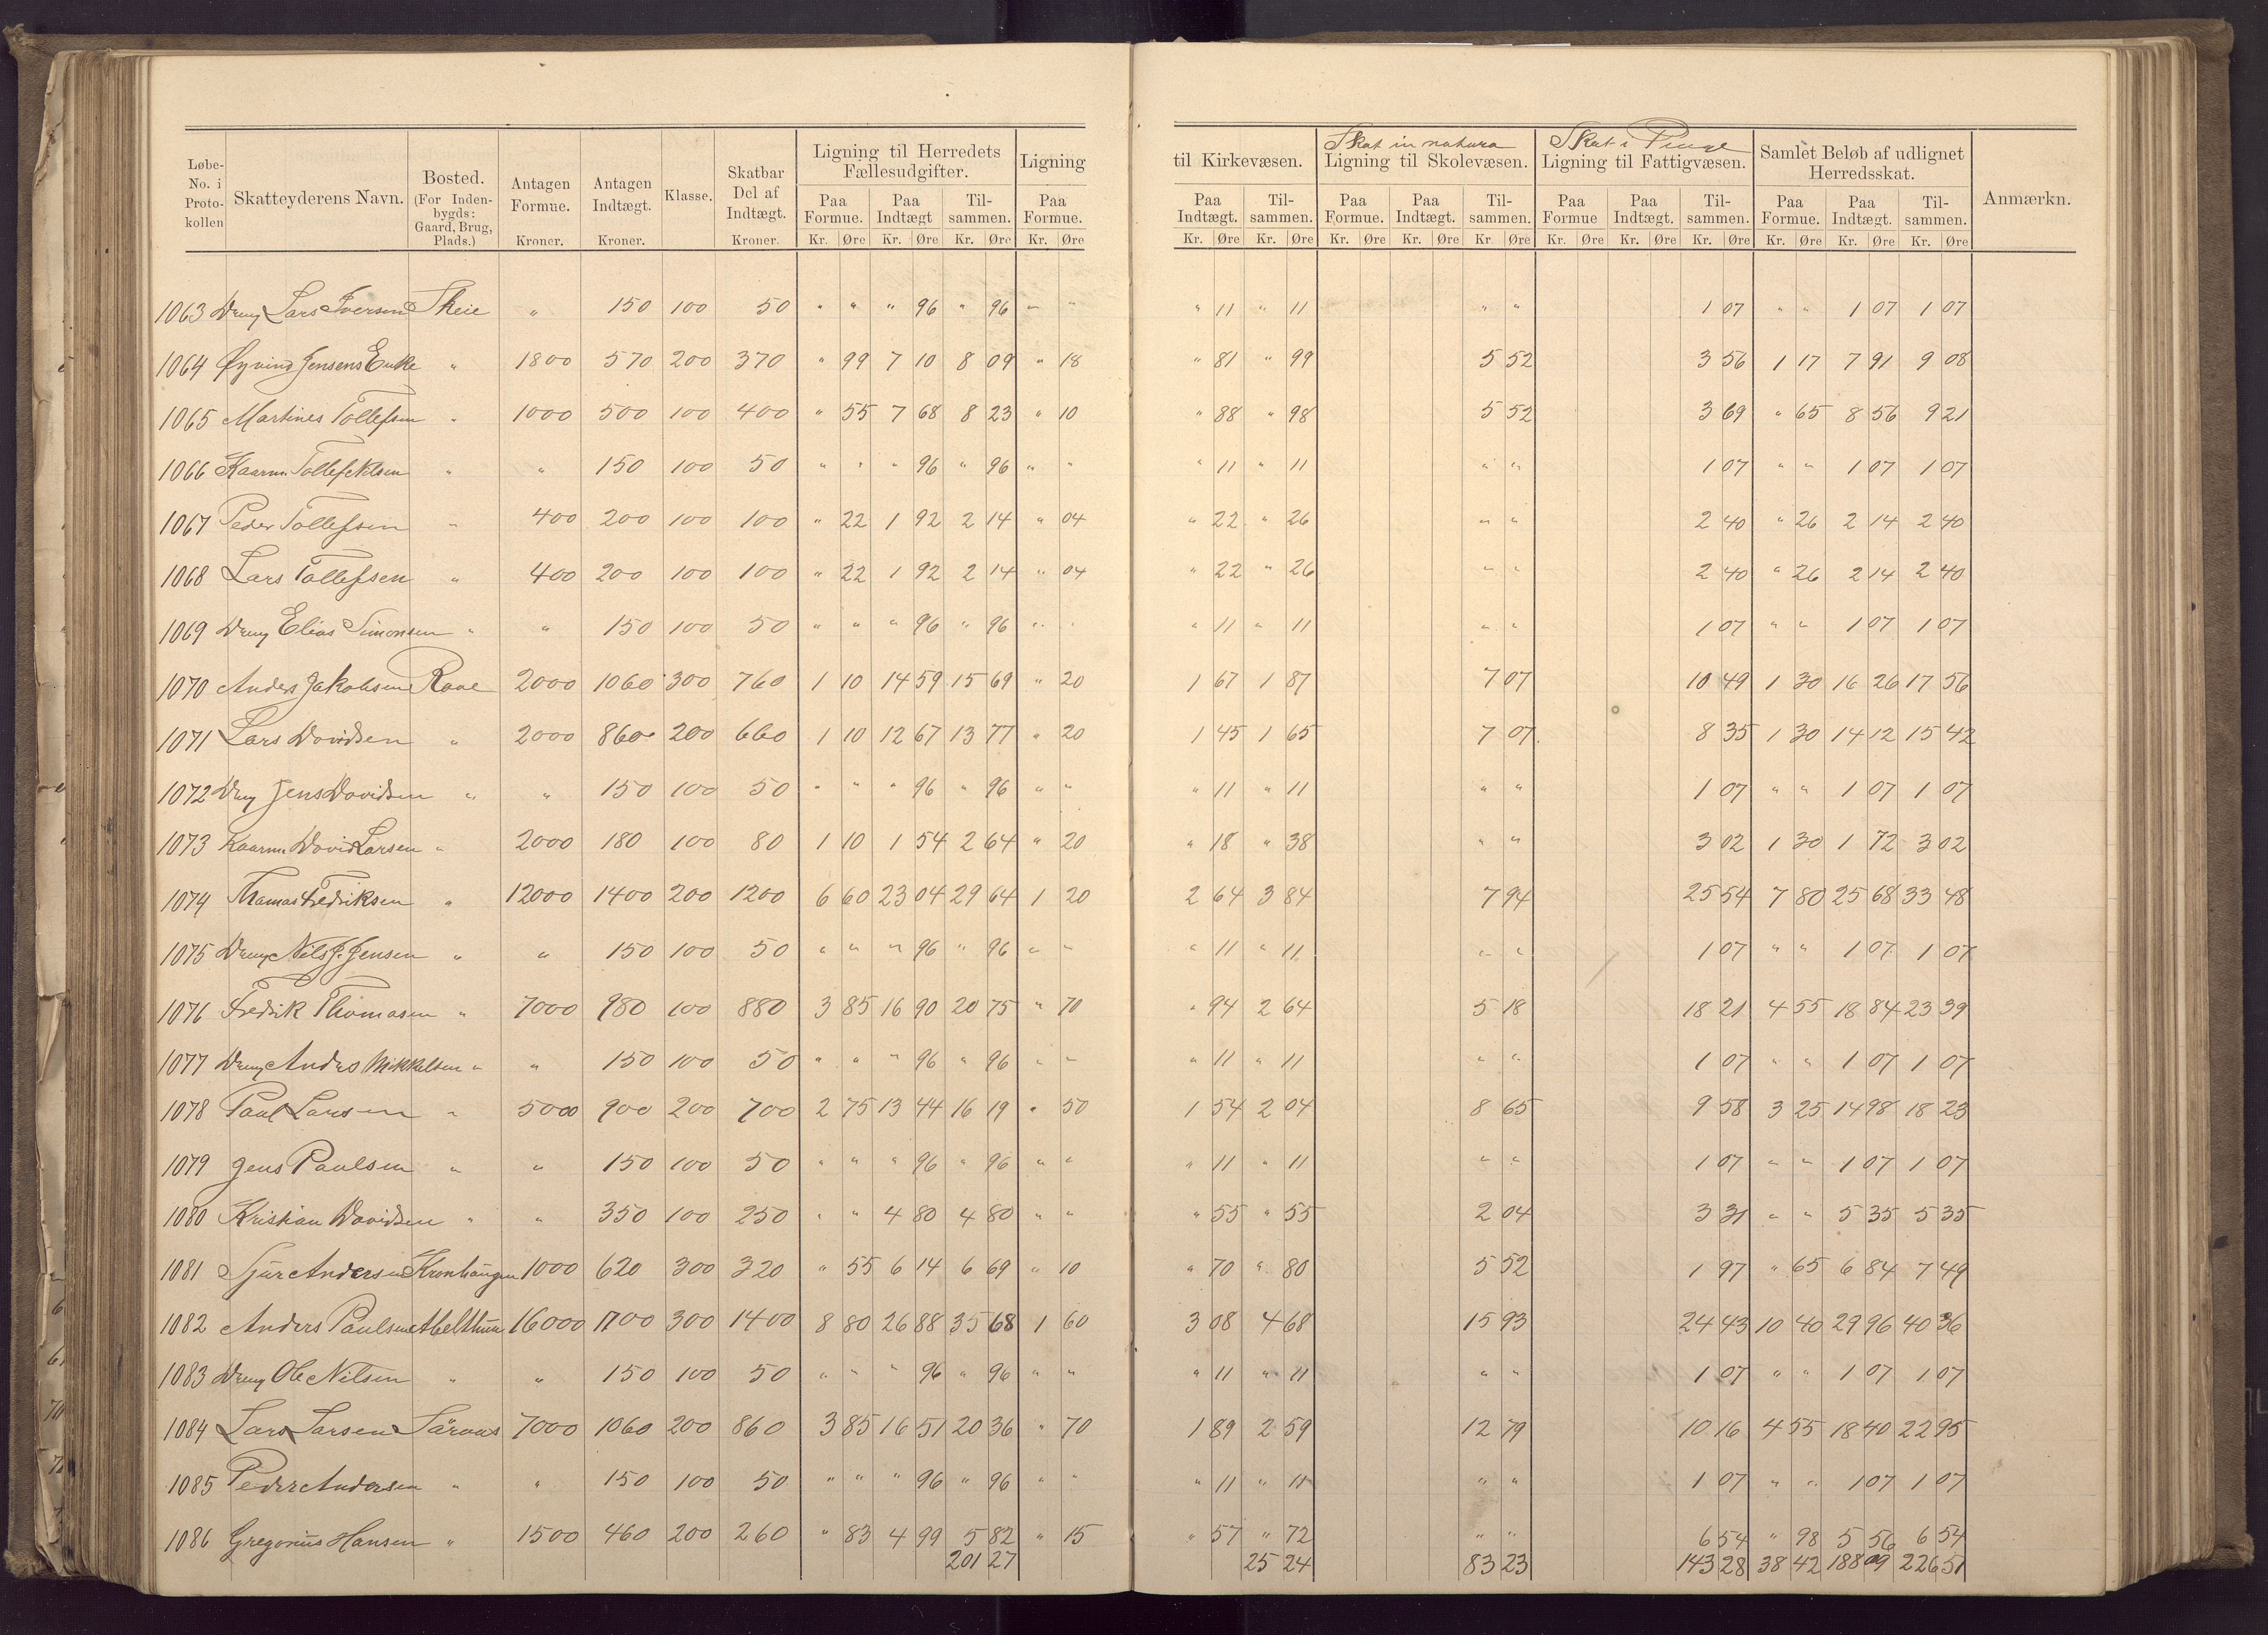 Løbe-No. i Proto-kollen | Skatteyderens Navn. | Bosted. (For Inden-bygds: Gaard, Brug, Plads.) | Antagen Formue. Kroner. | Antagen Indtægt. Kroner. | Klasse. | Skatbar Del af Indtægt. Kroner. | Ligning til Herredets Fællesudgifter. Paa Formue. Kr. Øre | Paa Indtægt Kr. Øre | Til-sammen. Kr. Øre | Ligning Paa Formue. Kr. Øre | til Kirkevæsen. Paa Indtægt. Kr. Øre | Til-sammen. Kr. Øre | Skat in natura Ligning til Skolevæsen. Paa Formue. Kr. Øre | Paa Indtægt. Kr. Øre | Til-sammen. Kr. Øre | Skat i Penge Ligning til Fattigvæsen. Paa Formue Kr. Øre | Paa Indtægt. Kr. Øre | Til-sammen. Kr. Øre | Samlet Beløb af udlignet Herredsskat. Paa Formue. Kr. Øre | Paa Indtægt. Kr. Øre | Til-sammen. Kr. Øre | Anmærkn.
1063 Dreng Lars Iversen Skeie " 150 100 50 " " " 96 " 96 " " " 11 " 11 " " 1 07 " " 1 07 1 07
1064 Øyvind Jensens Enke " 1800 570 200 370 " 99 7 10 8 09 " 18 " 81 " 99 5 52 3 56 1 17 7 91 9 08
1065 Martines Tollefsen " 1000 500 100 400 " 55 7 68 8 23 " 10 " 88 " 98 5 52 3 69 " 65 8 56 9 21
1066 Kaarm. Tollef Nilsen " " 150 100 50 " " " 96 " 96 " " " 11 " 11 " " 1 07 " " 1 07 1 07
1067 Peder Tollefsen " 400 200 100 100 " 22 1 92 2 14 " 04 " 22 " 26 " " 2 40 " 26 2 14 2 40
1068 Lars Tollefsen " 400 200 100 100 " 22 1 92 2 14 " 04 " 22 " 26 " " 2 40 " 26 2 14 2 40
1069 Dreng Elias Simonsen " " 150 100 50 " " " 96 " 96 " " " 11 " 11 " " 1 07 " " 1 07 1 07
1070 Anders Jakobsen Røve 2000 1060 300 760 1 10 14 59 15 69 " 20 1 67 1 87 7 07 10 49 1 30 16 26 17 56
1071 Lars Davidsen " 2000 860 200 660 1 10 12 67 13 77 " 20 1 45 1 65 7 07 8 35 1 30 14 12 15 42
1072 Dreng Jens Davidsen " " 150 100 50 " " " 96 " 96 " " " 11 " 11 " " 1 07 " " 1 07 1 07
1073 Kaarm. David Larsen " 2000 180 100 80 1 10 1 54 2 64 " 20 " 18 " 38 " " 3 02 1 30 1 72 3 02
1074 Thomas Fredriksen " 12000 1400 200 1200 6 60 23 04 29 64 1 20 2 64 3 84 7 94 25 54 7 80 25 68 33 48
1075 Dreng Nils J. Jensen " " 150 100 50 " " " 96 " 96 " " " 11 " 11 " " 1 07 " " 1 07 1 07
1076 Fredrik Thomasen " 7000 980 100 880 3 85 16 90 20 75 " 70 " 94 2 64 5 18 18 21 4 55 18 84 23 39
1077 Dreng Anders Mikkelsen " " 150 100 50 " " " 96 " 96 " " " 11 " 11 " " 1 07 " " 1 07 1 07
1078 Paul Larsen " 5000 900 200 700 2 75 13 44 16 19 " 50 1 54 2 04 8 65 9 58 3 25 14 98 18 23
1079 Jens Paulsen " " 150 100 50 " " " 96 " 96 " " " 11 " 11 " " 1 07 " " 1 07 1 07
1080 Kristian Davidsen " " 350 100 250 " " 4 80 4 80 " " " 55 " 55 2 04 3 31 " " 5 35 5 35
1081 Sjur Andersen Kronhaugen 1000 620 300 320 " 55 6 14 6 69 " 10 " 70 " 80 5 52 1 97 " 65 6 84 7 49
1082 Anders Paulsen Melthun 16000 1700 300 1400 8 80 26 88 35 68 1 60 3 08 4 68 15 93 24 43 10 40 29 96 40 36
1083 Dreng Ole Nilsen " " 150 100 50 " " " 96 " 96 " " " 11 " 11 " " 1 07 " " 1 07 1 07
1084 Lars Larsen 7000 1060 200 860 3 85 16 51 20 36 " 70 1 89 2 59 12 79 10 16 4 55 18 40 22 95
1085 Peder Andersen " " 150 100 50 " " " 96 " 96 " " " 11 " 11 " " 1 07 " " 1 07 1 07
1086 Gregorius Hansen " 1500 460 200 260 " 83 4 99 5 82 " 15 " 57 " 72 " " 6 54 " 98 5 56 6 54
201 27 25 24 83 23 143 28 38 42 188 09 226 51